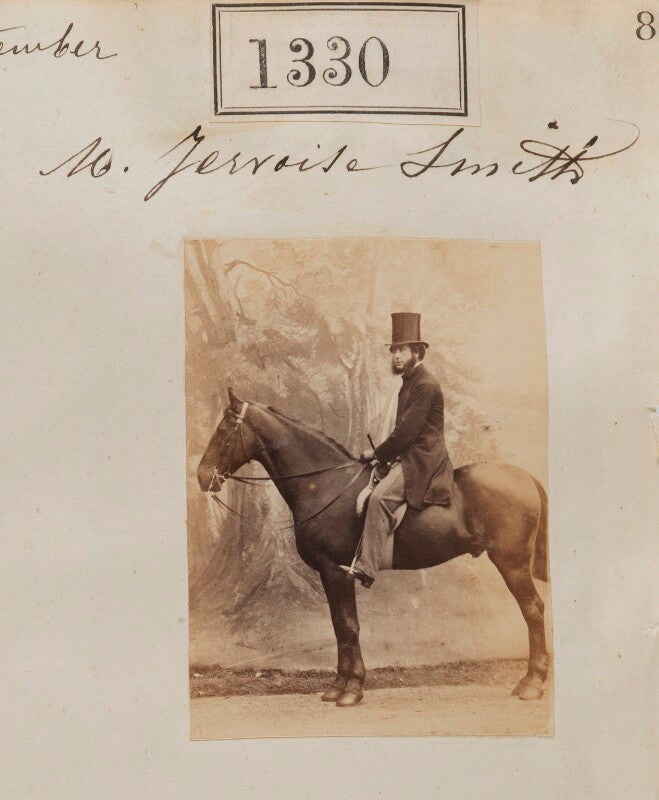 ember
1330
8
M. Jervoise Smith